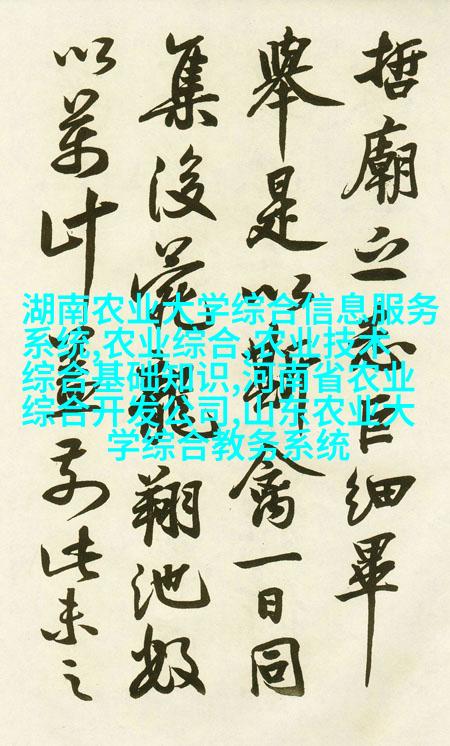 哲廟之志巨細畢
舉是以斯禽一日同
集後苑龍翔池數
以萬計蓋前此未之
湖南农业大学综合信息服务
系统,农业综合,农业技术
综合基础知识,河南省农业
综合开发公司,山东农业大
学综合教务系统